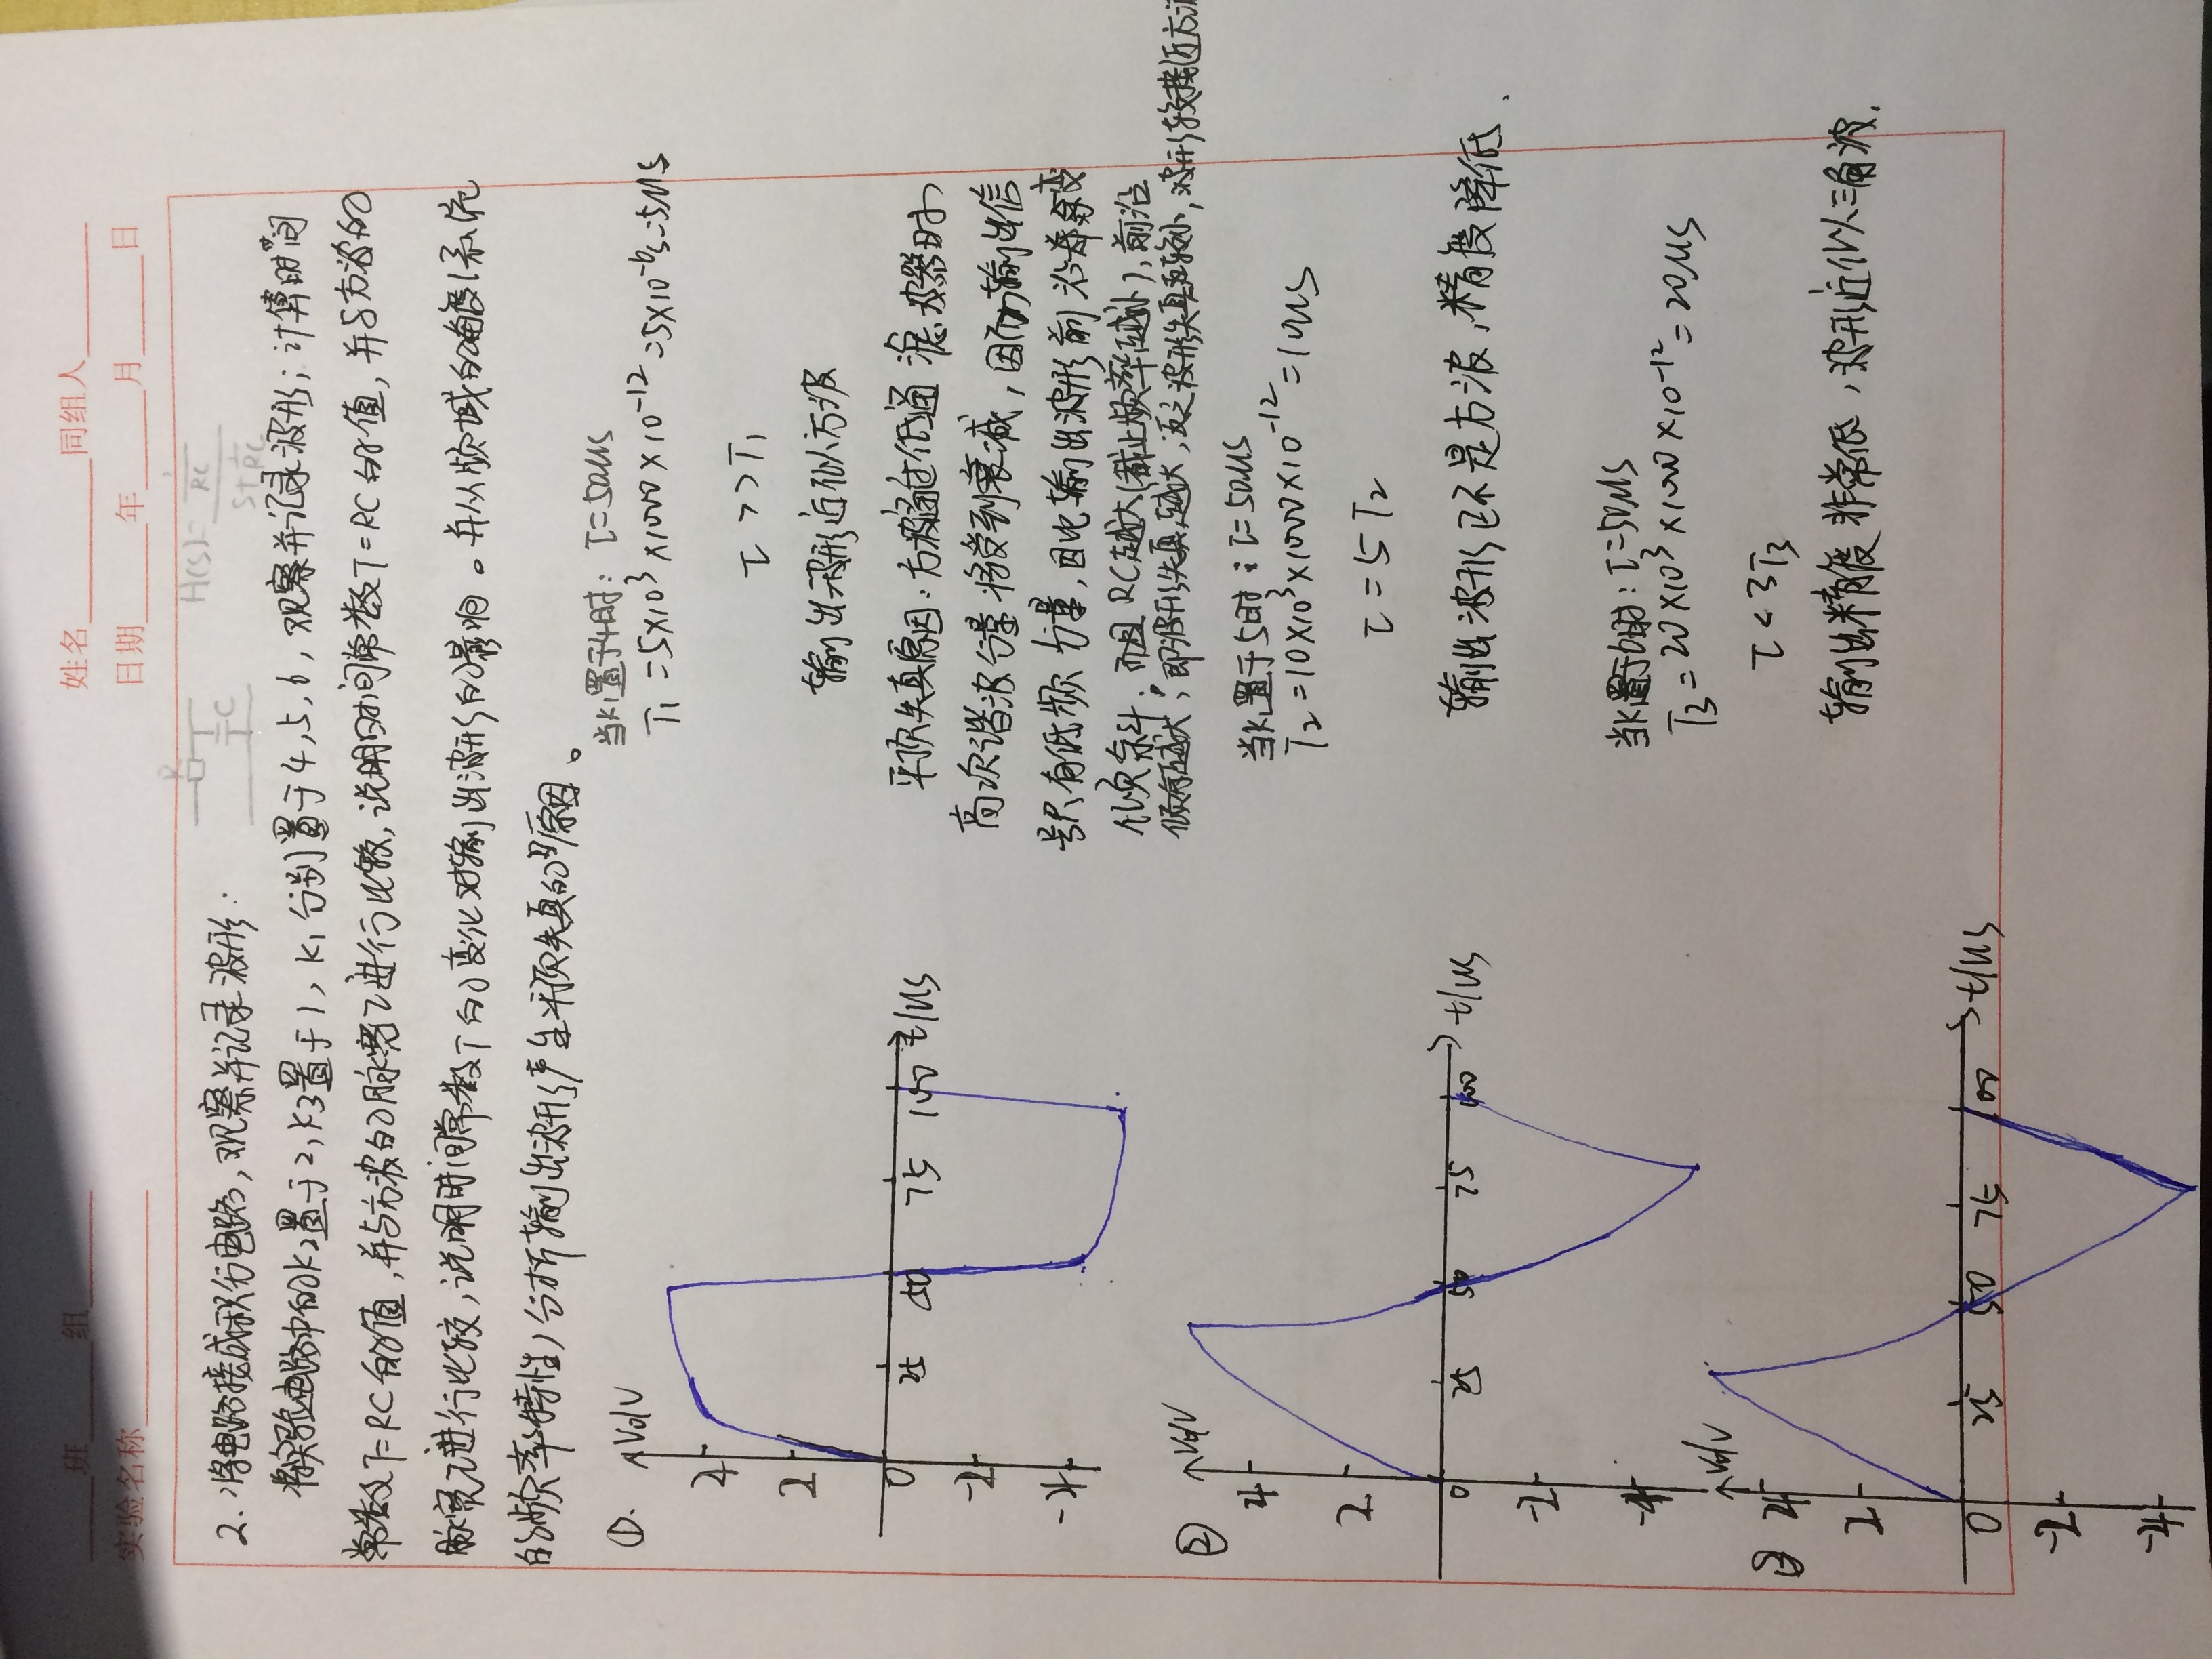 班 组
姓名 同组人
实验名称
日期 年 月 日
R C H(s)= 1/RC / S+1/RC
2. 将电路接成积分电路,观察并记录波形:
将实验电路中的K2置于2,K3置于1,K1分别置于4,5,6,观察并记录波形;计算时间
常数T=RC的值,并与方波的脉宽τ进行比较,说明时间常数T=RC的值,并与方波的
脉宽τ进行比较,说明时间常数T的变化对输出波形的影响。并从频域的角度(系统
的频率特性)分析输出波形产生平顶失真的原因。
①. Vo/V
4
2
0 25 50 75 100 t/μs
-2
-4
当K1置于4时: τ=50μs
T1=5×10³×1000×10⁻¹²=5×10⁻⁶s=5μs
τ>>T1
输出波形近似方波
平顶失真原因:方波通过低通滤波器时,
高次谐波分量将受到衰减,因而输出信
号只有低频分量,因此输出波形前沿变
化倾斜,而且RC越大(截止频率越小),前沿
倾斜越大,即波形失真越大,反之波形失真较小,波形较接近方波
② Vo/V
4
2
0 25 50 75 100 t/μs
-2
-4
当K1置于5时:τ=50μs
T2=10×10³×1000×10⁻¹²=10μs
τ=5T2
输出波形已不是方波,精度降低.
③ Vo/V
4
2
0 25 50 75 100 t/μs
-2
-4
当K1置于6时:τ=50μs
T3=20×10³×1000×10⁻¹²=20μs
τ<3T3
输出精度非常低,波形近似三角波.